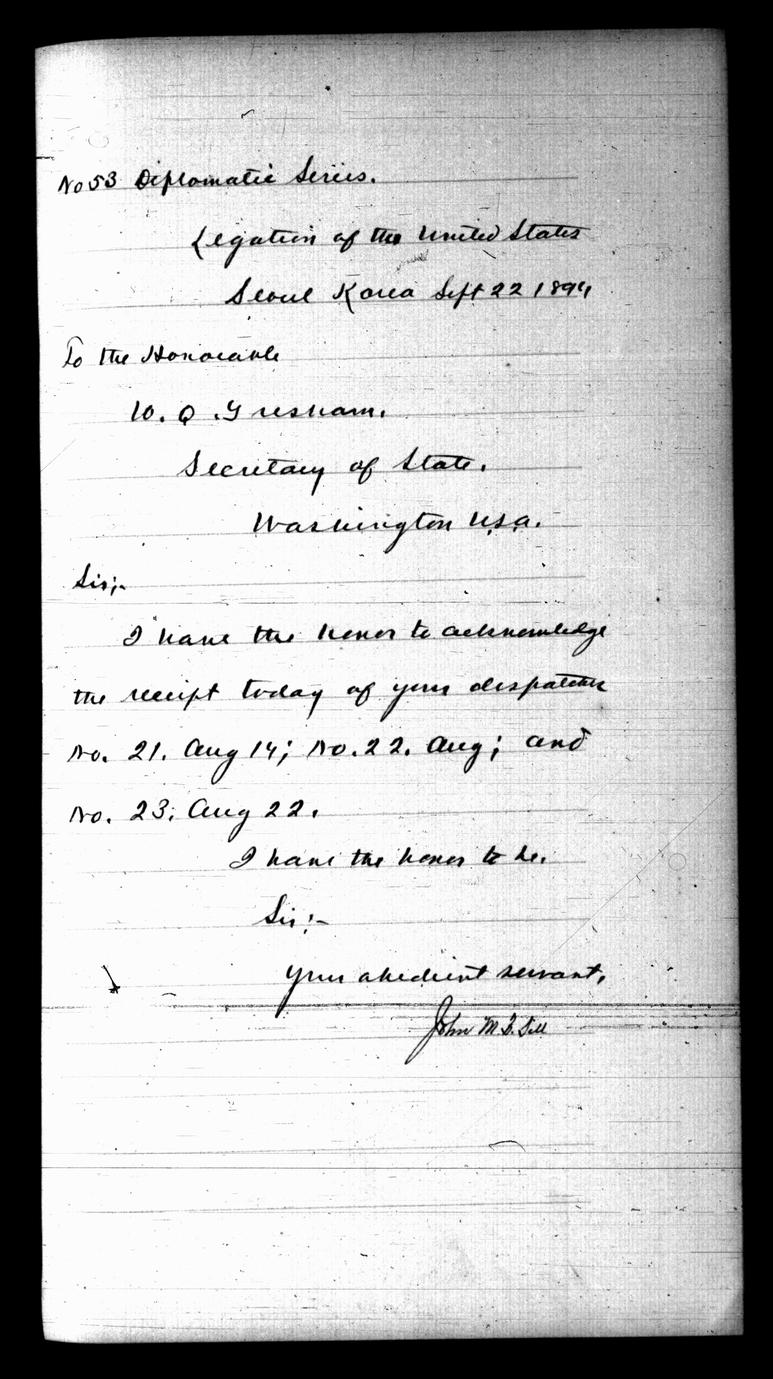 No 53 Diplomatic Series.
Legation of the United States
Seoul Korea Sept 22 1894
To the Honorable
W. Q. Gresham.
Secretary of State.
Washington U.S.A.
Sir;-
I have the honor to acknowledge
the receipt today of your dispatches
No. 21. Aug 14; No. 22. Aug; and
No. 23. Aug 22.
I have the honor to be.
Sir:-
Your obedient servant,
John M. B. Sill